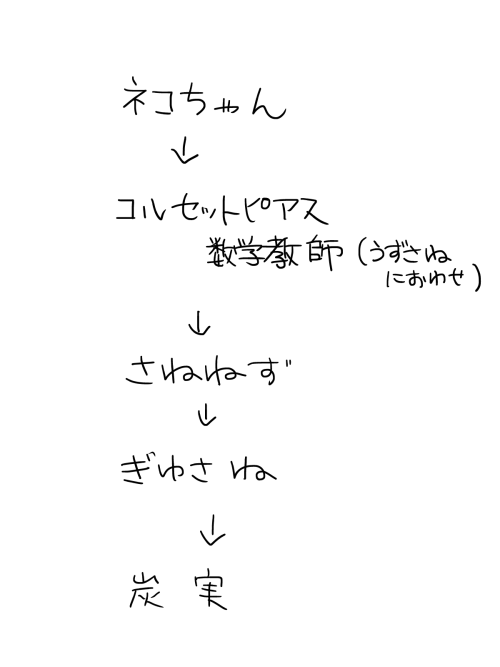 ネコちゃん
↓
コルセットピアス
数学教師(うずさね
におわせ)
↓
さねねず
↓
ぎゆさね
↓
炭実